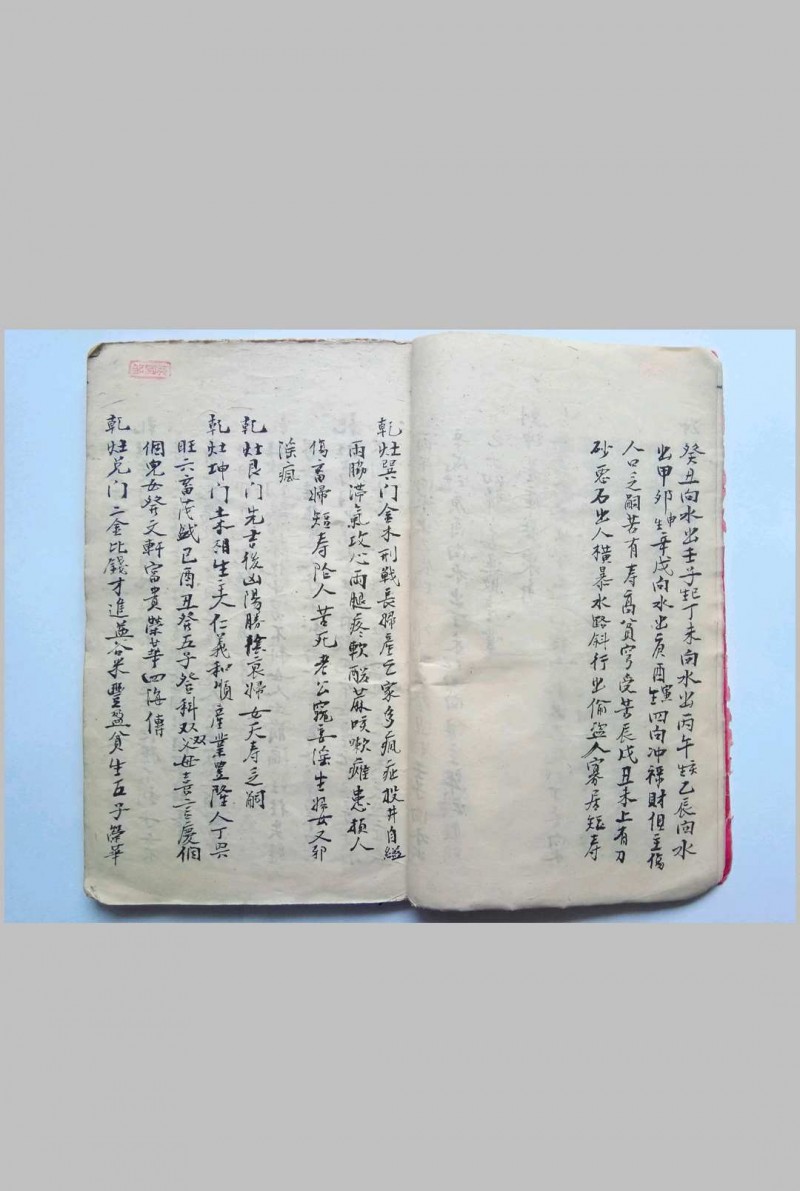 癸丑向水出壬子起丁未向水出丙午生亥乙辰向水
出甲卯生申辛戌向水出庚酉生寅四向冲禄财但主傷
人口乏嗣苦有寿高貧穷受苦辰戌丑未上有刀
砂惡石出人横暴水路斜行出偷盗人寡居短寿
乾灶巽门金木刑戰長婦産亡家多疯症投井自縊
兩脇滞氣攻心兩腿疼軟酸蔴咳嗽癱患損人
傷畜婦短寿陰人苦死老公寵妾滛生婦女又邪
滛瘋
乾灶艮门先吉後凶陽勝陰衰婦女夭寿乏嗣
乾灶坤门土金相生主人仁義和順産業豊隆人丁兴
旺六畜茂盛巳酉丑癸五子登科双双父母喜言慶個
個兒女發文軒富貴榮華四海傳
乾灶兑门二金比錢才進益谷米豐盈貪生五子榮華